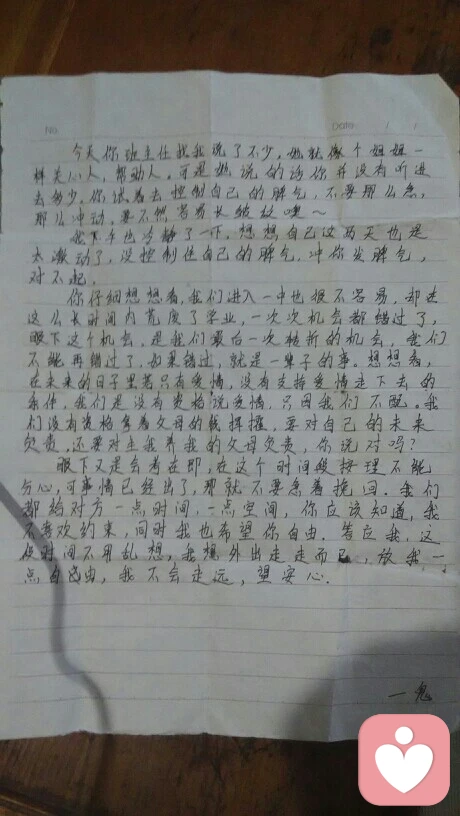 No.
Date / /
今天你班主任找我说了不少,她就像个姐姐一
样关心人,帮助人,可是她说的话你并没有听进
去多少,你试着去控制自己的脾气,不要那么急,
那么冲动,要不然容易长皱纹噢~
我下午也冷静了一下,想想自己这两天也是
太激动了,没控制住自己的脾气,冲你发脾气,
对不起.
你仔细想想看,我们进入一中也很不容易,却在
这么长时间内荒废了学业,一次次机会都错过了,
眼下这个机会,是我们最后一次转折的机会,我们
不能再错过了,如果错过,就是一辈子的事。想想看,
在未来的日子里若只有爱情,没有支持爱情走下去的
条件,我们是没有资格说爱情,只因我们不配。我
们没有资格拿着父母的钱挥擢,要对自己的未来
负责,还要对生我养我的父母负责,你说对吗?
眼下又是会考在即,在这个时间段按理不能
分心,可事情已经出了,那就不要急着挽回.我们
都给对方一点时间,一点空间,你应该知道,我
不喜欢约束,同时我也希望你自由.答应我,这
段时间不用乱想,我想外出走走而已,放我一
点自由,我不会走远,望安心.
一鬼